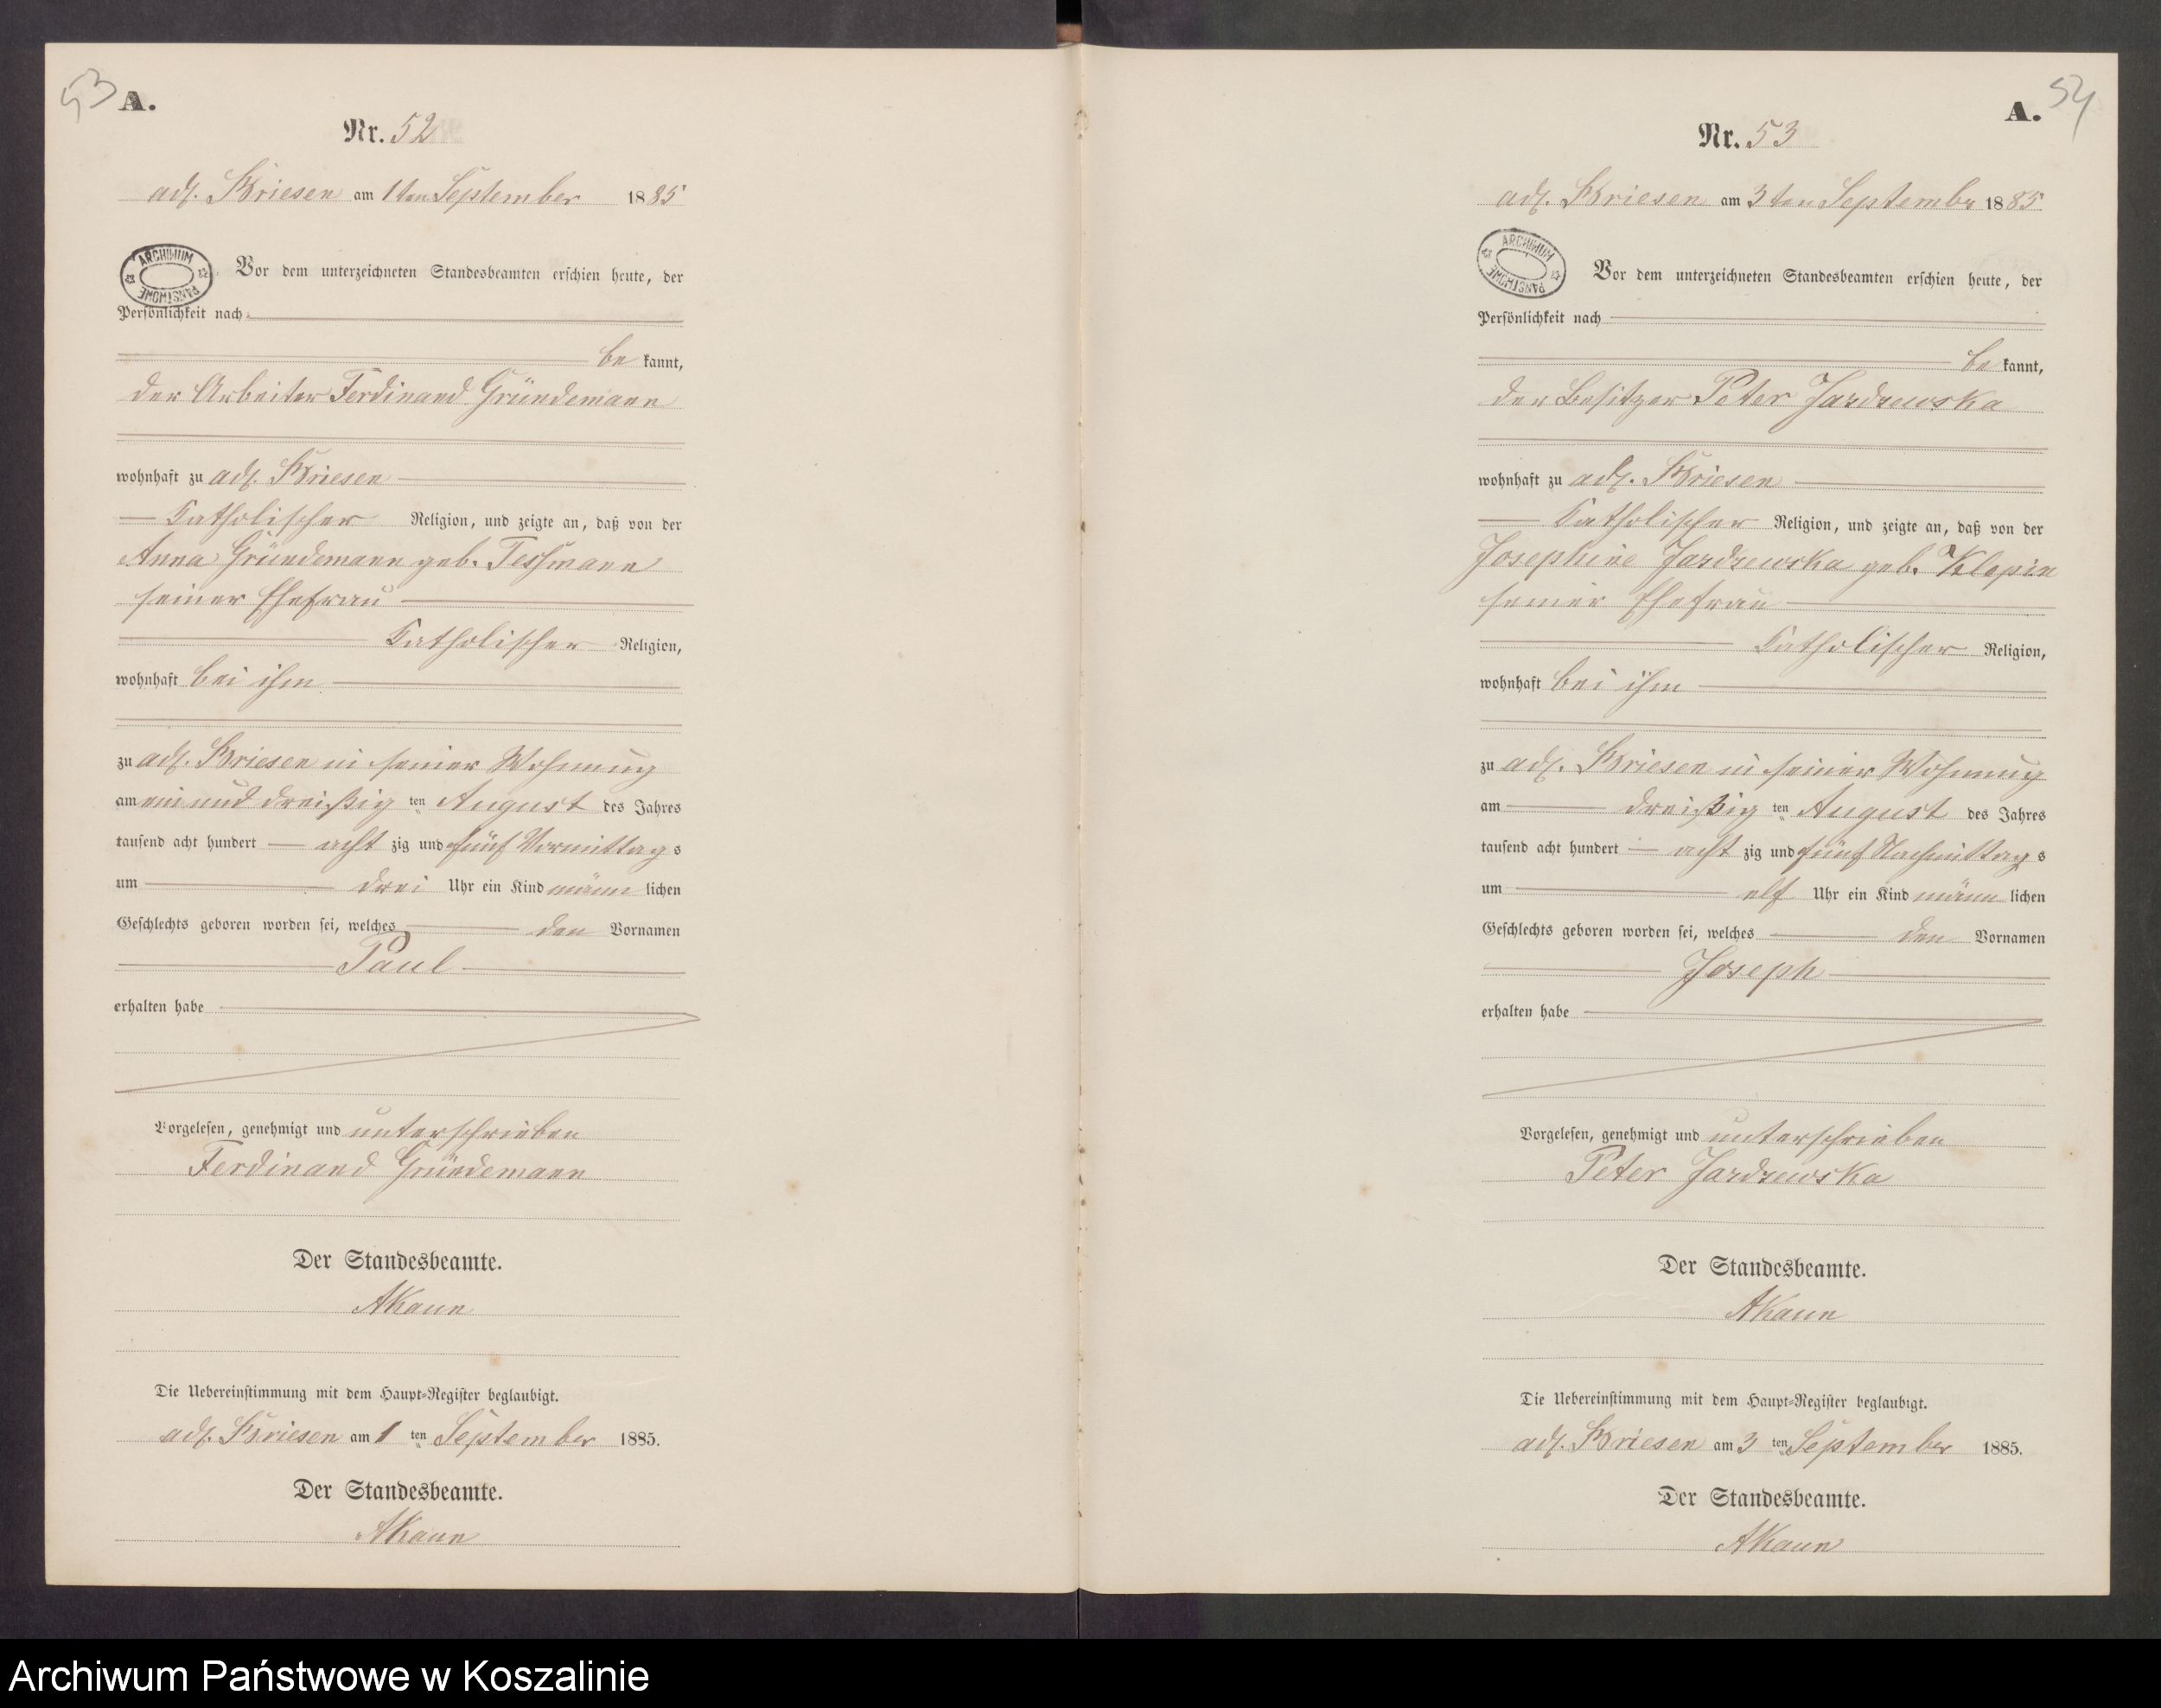 53 A.
Nr. 52
adl. Briesen am 1ten September 1885
ARCHIWUM PAŃSTWOWE
Vor dem unterzeichneten Standesbeamten erschien heute, der
Persönlichkeit nach
be kannt,
der Arbeiter Ferdinand Gründemann
wohnhaft zu adl. Briesen
katholischer Religion, und zeigte an, daß von der
Anna Gründemann geb. Tessmann
seiner Ehefrau
katholischer Religion,
wohnhaft bei ihm
zu adl. Briesen in seiner Wohnung
am ein und dreißig ten August des Jahres
tausend acht hundert acht zig und fünf Vormittag s
um drei Uhr ein Kind männ lichen
Geschlechts geboren worden sei, welches den Vornamen
Paul
erhalten habe
Vorgelesen, genehmigt und unterschrieben
Ferdinand Gründemann
Der Standesbeamte.
AKaun
Die Uebereinstimmung mit dem Haupt-Register beglaubigt.
adl. Briesen am 1 ten September 1885.
Der Standesbeamte.
AKaun
A. 54
Nr. 53
adl. Briesen am 3ten Septembr 1885
ARCHIWUM PAŃSTWOWE
Vor dem unterzeichneten Standesbeamten erschien heute, der
Persönlichkeit nach
be kannt,
der Besitzer Peter Jardzewska
wohnhaft zu adl. Briesen
katholischer Religion, und zeigte an, daß von der
Josephine Jardzewska geb. Klopin
seiner Ehefrau
katholischer Religion,
wohnhaft bei ihm
zu adl. Briesen in seiner Wohnung
am dreißig ten August des Jahres
tausend acht hundert acht zig und fünf Nachmittag s
um elf Uhr ein Kind männ lichen
Geschlechts geboren worden sei, welches den Vornamen
Joseph
erhalten habe
Vorgelesen, genehmigt und unterschrieben
Peter Jardzewska
Der Standesbeamte.
AKaun
Die Uebereinstimmung mit dem Haupt-Register beglaubigt.
adl. Briesen am 3 ten September 1885.
Der Standesbeamte.
AKaun
Archiwum Państwowe w Koszalinie